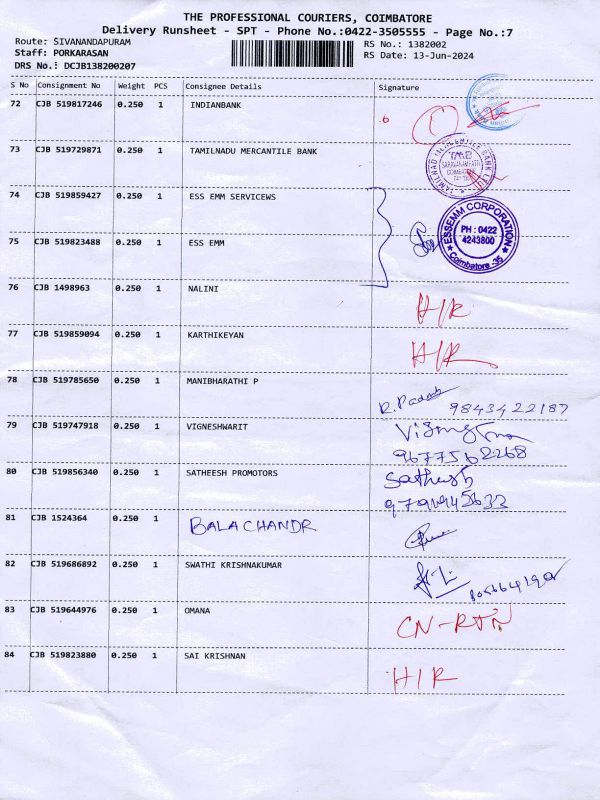 THE PROFESSIONAL COURIERS, COIMBATORE
Delivery Runsheet - SPT - Phone No.:0422-3505555 - Page No.:7
Route: SIVANANDAPURAM RS No.: 1382002
Staff: PORKARASAN RS Date: 13-Jun-2024
DRS No.: DCJB138200207
S No Consignment No Weight PCS Consignee Details Signature
72 CJB 519817246 0.250 1 INDIANBANK
73 CJB 519729871 0.250 1 TAMILNADU MERCANTILE BANK
TAMILNAD MERCANTILE BANK
TMB
74 CJB 519859427 0.250 1 ESS EMM SERVICEWS
ESSEMM CORPORATION
PH : 0422
4243800
Coimbatore -35
75 CJB 519823488 0.250 1 ESS EMM
76 CJB 1498963 0.250 1 NALINI H/R
77 CJB 519859094 0.250 1 KARTHIKEYAN H/R
78 CJB 519785650 0.250 1 MANIBHARATHI P 9843422187
79 CJB 519747918 0.250 1 VIGNESHWARIT
9677562268
80 CJB 519856340 0.250 1 SATHEESH PROMOTORS Sathesh
81 CJB 1524364 0.250 1 BALACHANDR
82 CJB 519686892 0.250 1 SWATHI KRISHNAKUMAR
83 CJB 519644976 0.250 1 OMANA CN-RTN
84 CJB 519823880 0.250 1 SAI KRISHNAN H/R